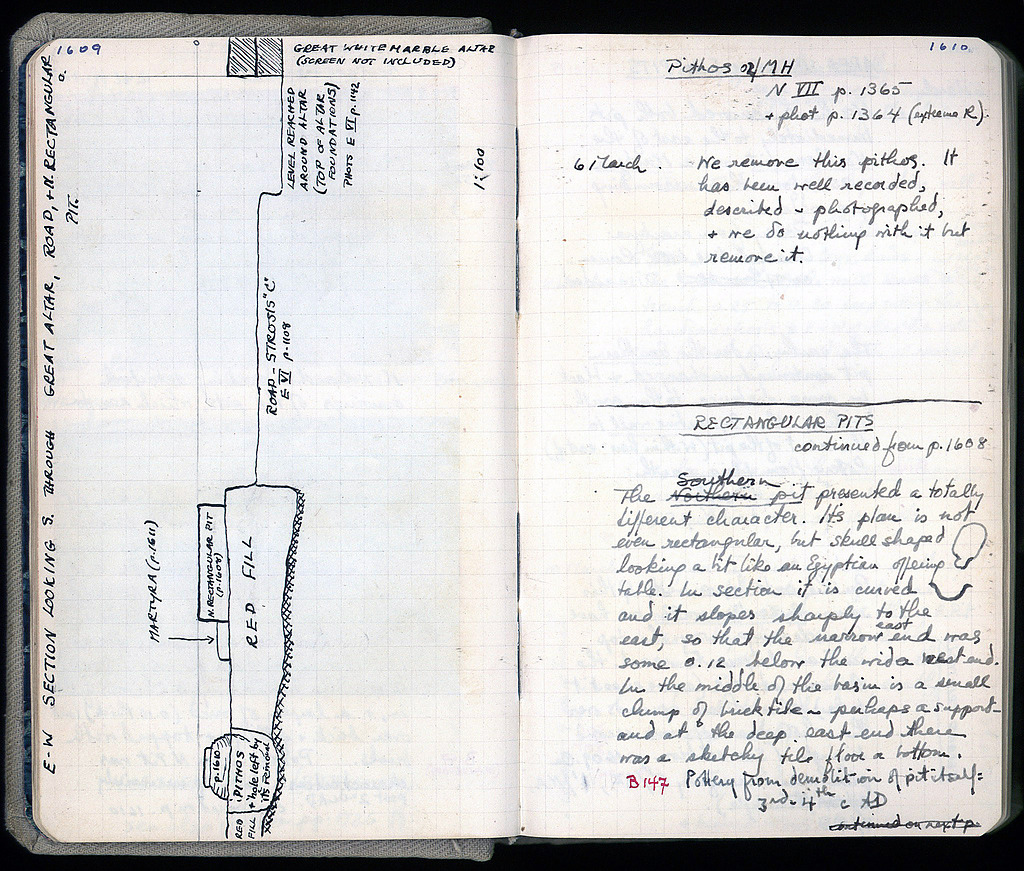 1609
E-W SECTION LOOKING S. THROUGH GREAT ALTAR, ROAD, + N. RECTANGULAR
PIT.
GREAT WHITE MARBLE ALTAR
(SCREEN NOT INCLUDED)
LEVEL REACHED
AROUND ALTAR
(TOP OF ALTAR
FOUNDATIONS)
PHOTS E VI p. 1142
1:100
ROAD-STROSIS "C"
E VI p. 1108
MARTYRA (p. 1611)
N. RECTANGULAR PIT
(p. 1608)
RED FILL
p. 1610
PITHOS
+ hole left by
its removal
RED
FILL
1610
Pithos MH
N VII p. 1365
+ phot p. 1364 (extreme R).
6 March - We remove this pithos. It
has been well recorded,
described + photographed,
+ we do nothing with it but
remove it.
RECTANGULAR PITS
continued from p. 1608
Southern
The Northern pit presented a totally
different character. Its plan is not
even rectangular, but skull shaped
looking a bit like an Egyptian offering
table. In section it is curved
and it slopes sharply to the
east, so that the narrow east end was
some 0.12 below the wider west end.
In the middle of the basin is a small
clump of brick tile - perhaps a support -
and at the deep, east end there
was a sketchy tile floor or bottom.
B147 Pottery from demolition of pit itself:
3rd-4th c AD
continued on next p.